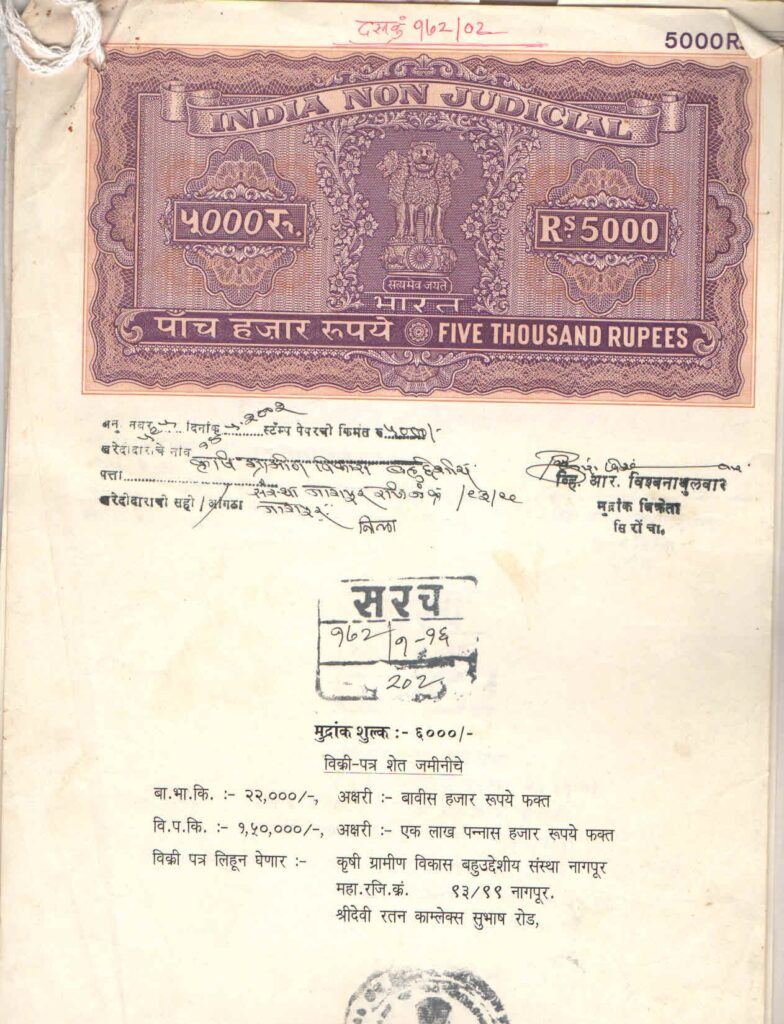 दसकुं १७२/०२
5000R
INDIA NON JUDICIAL
५000रु.
Rs 5000
सत्यमेव जयते
भारत
पाँच हज़ार रुपये FIVE THOUSAND RUPEES
अनु. नंबर दिनांक २००२ स्टॅम्प पेपरची किंमत रु ५०००/-
खरेदीदाराचे नांव कृषि ग्रामीण विकास बहुद्देशीय
पत्ता संस्था नागपूर
खरेदीदाराची सही / आंगठा नागपूर
जिल्हा
व्हि. आर. विश्वनाथुलवार
मुद्रांक विक्रेता
सिरोंचा.
सरच
१७२/१-१६
मुद्रांक शुल्क :- ६०००/-
विक्री-पत्र शेत जमीनीचे
बा.भा.कि. :- २२,०००/-, अक्षरी :- बावीस हजार रूपये फक्त
वि.प.कि. :- १,५०,०००/-, अक्षरी :- एक लाख पन्नास हजार रूपये फक्त
विक्री पत्र लिहून घेणार :- कृषी ग्रामीण विकास बहुउद्देशीय संस्था नागपूर
महा.रजि.क्रं. ९३/९९ नागपूर.
श्रीदेवी रतन काम्लेक्स सुभाष रोड,